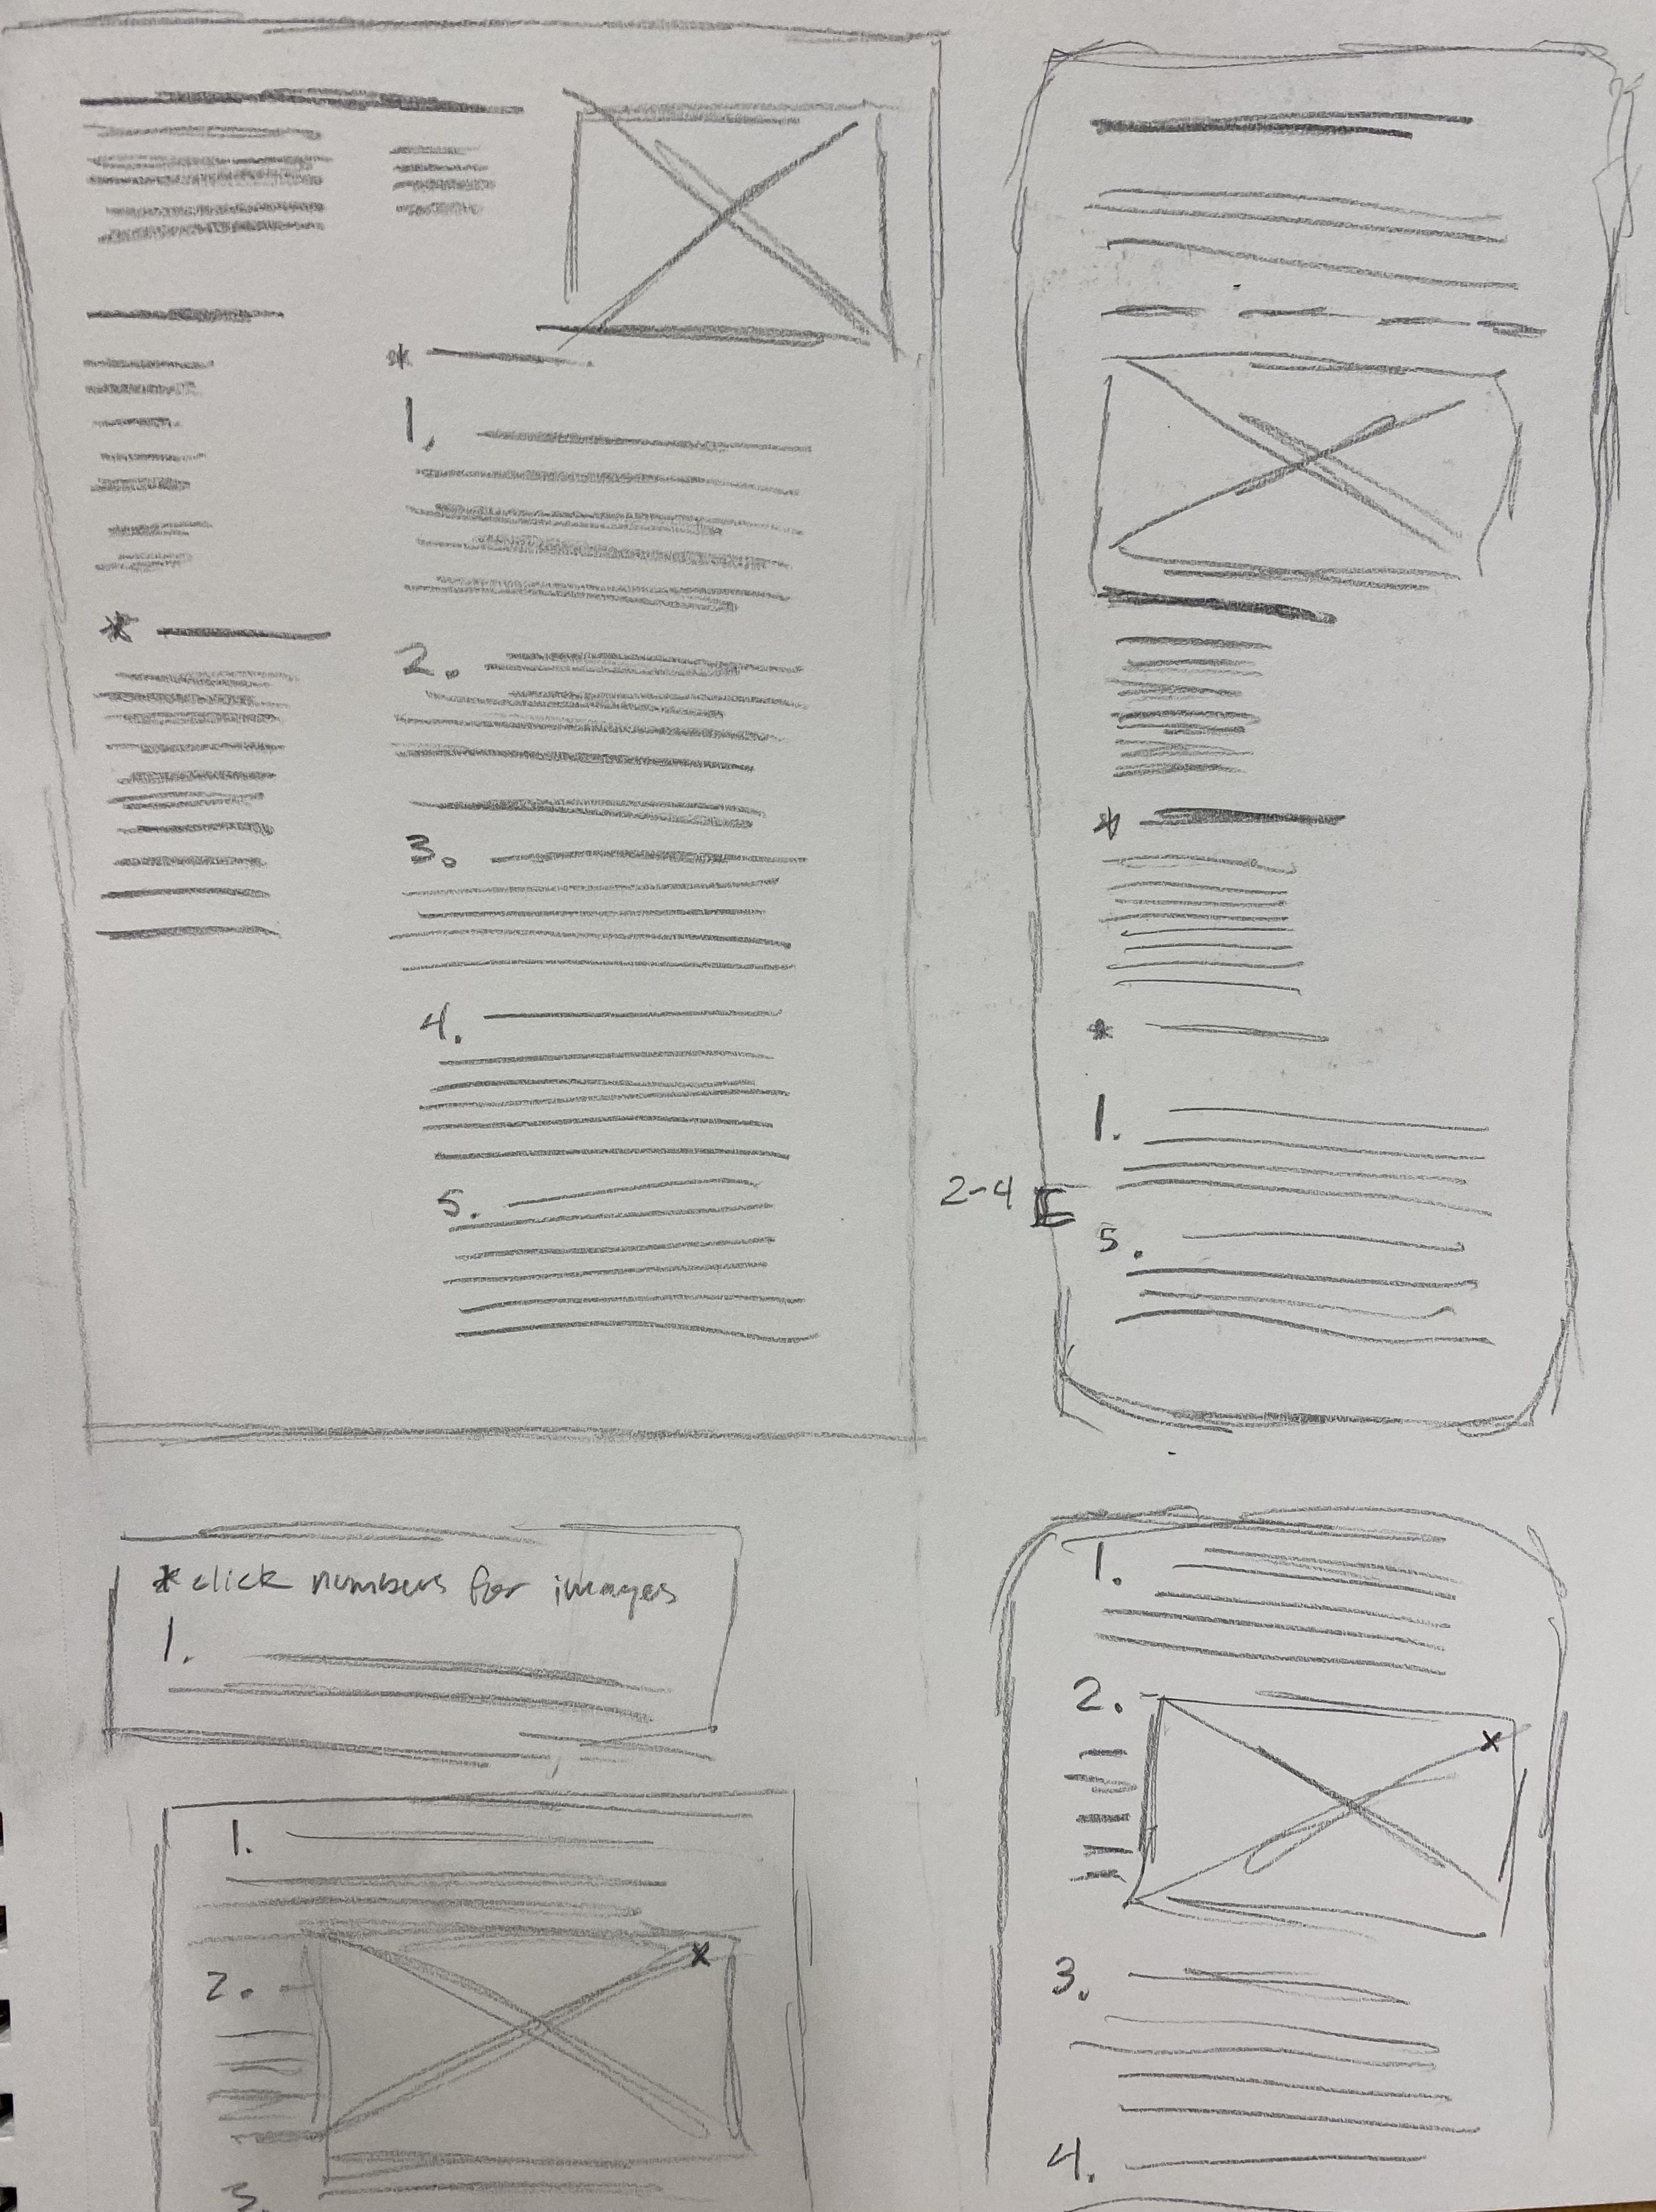 *
1.
2.
3.
4.
5.
*
*
*
1.
2-4 [
5.
* click numbers for images
1.
1.
x
2.
3.
1.
2.
x
3.
4.